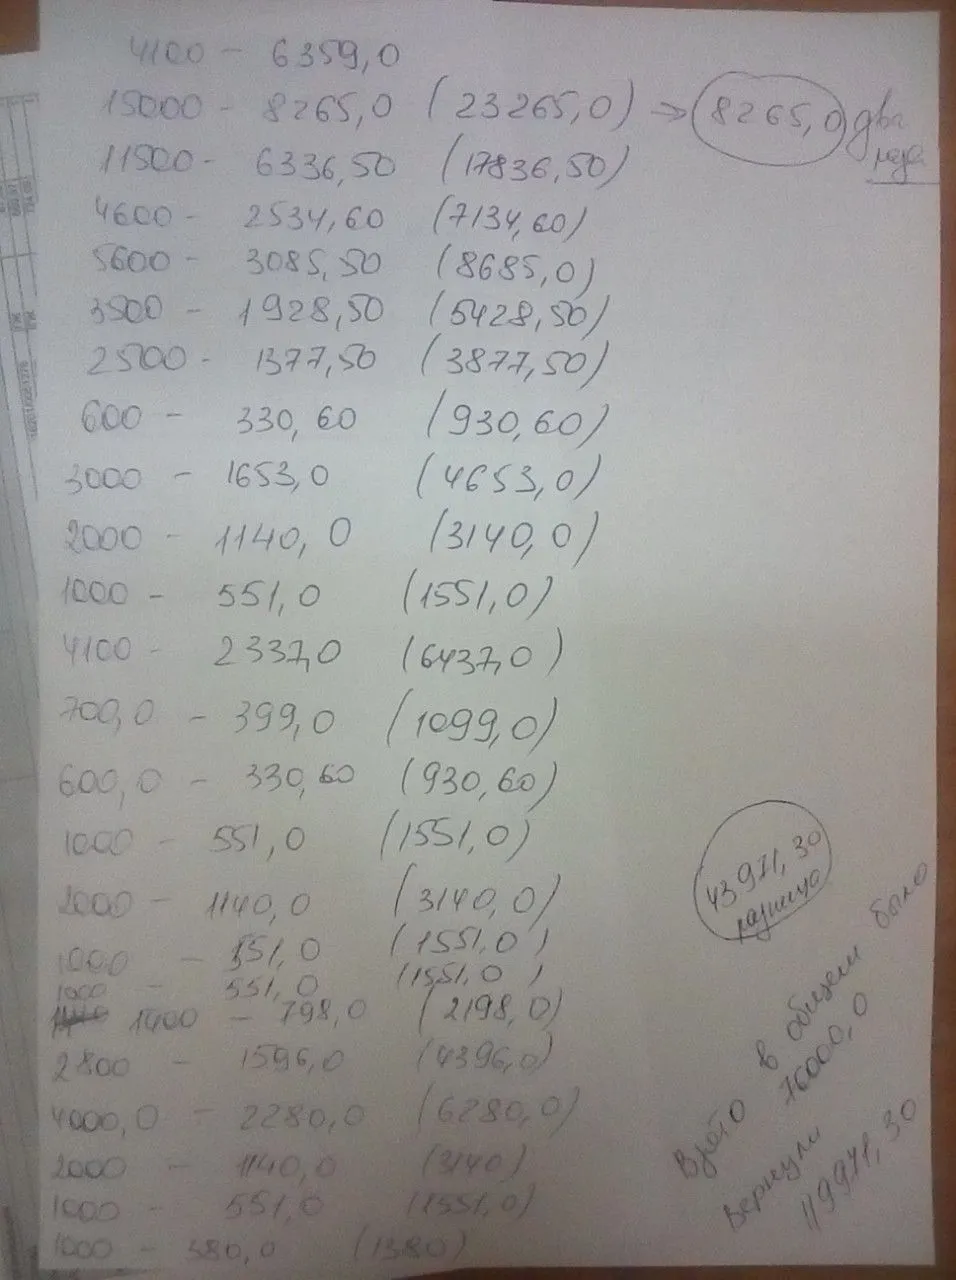 4100 - 6359,0
15000 - 8265,0 (23265,0) → 8265,0 два
раза
11500 - 6336,50 (17836,50)
4600 - 2534,60 (7134,60)
5600 - 3085,50 (8685,0)
3500 - 1928,50 (5428,50)
2500 - 1377,50 (3877,50)
600 - 330,60 (930,60)
3000 - 1653,0 (4653,0)
2000 - 1140,0 (3140,0)
1000 - 551,0 (1551,0)
4100 - 2337,0 (6437,0)
700,0 - 399,0 (1099,0)
600,0 - 330,60 (930,60)
1000 - 551,0 (1551,0)
2000 - 1140,0 (3140,0)
1000 - 551,0 (1551,0)
1000 - 551,0 (1551,0)
1400 - 798,0 (2198,0)
2800 - 1596,0 (4396,0)
4000,0 - 2280,0 (6280,0)
2000 - 1140,0 (3140)
1000 - 551,0 (1551,0)
1000 - 380,0 (1380)
43971,30
разница
Взято в общем было
76000,0
вернули
119971,30